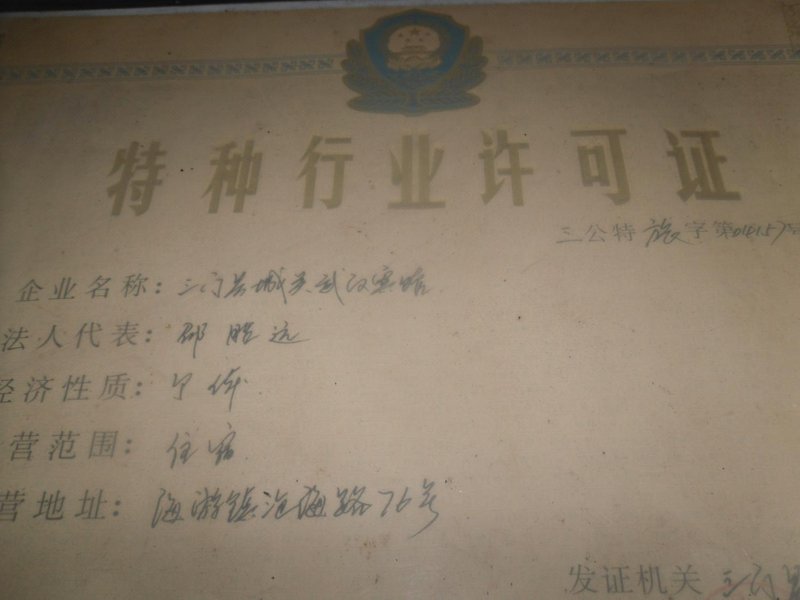 特种行业许可证
三公特旅字第04157号
企业名称：三门县城关武汉宾馆
法人代表：邵胜远
经济性质：个体
营范围：住宿
营地址：海游镇沧海路76号
发证机关 三门县